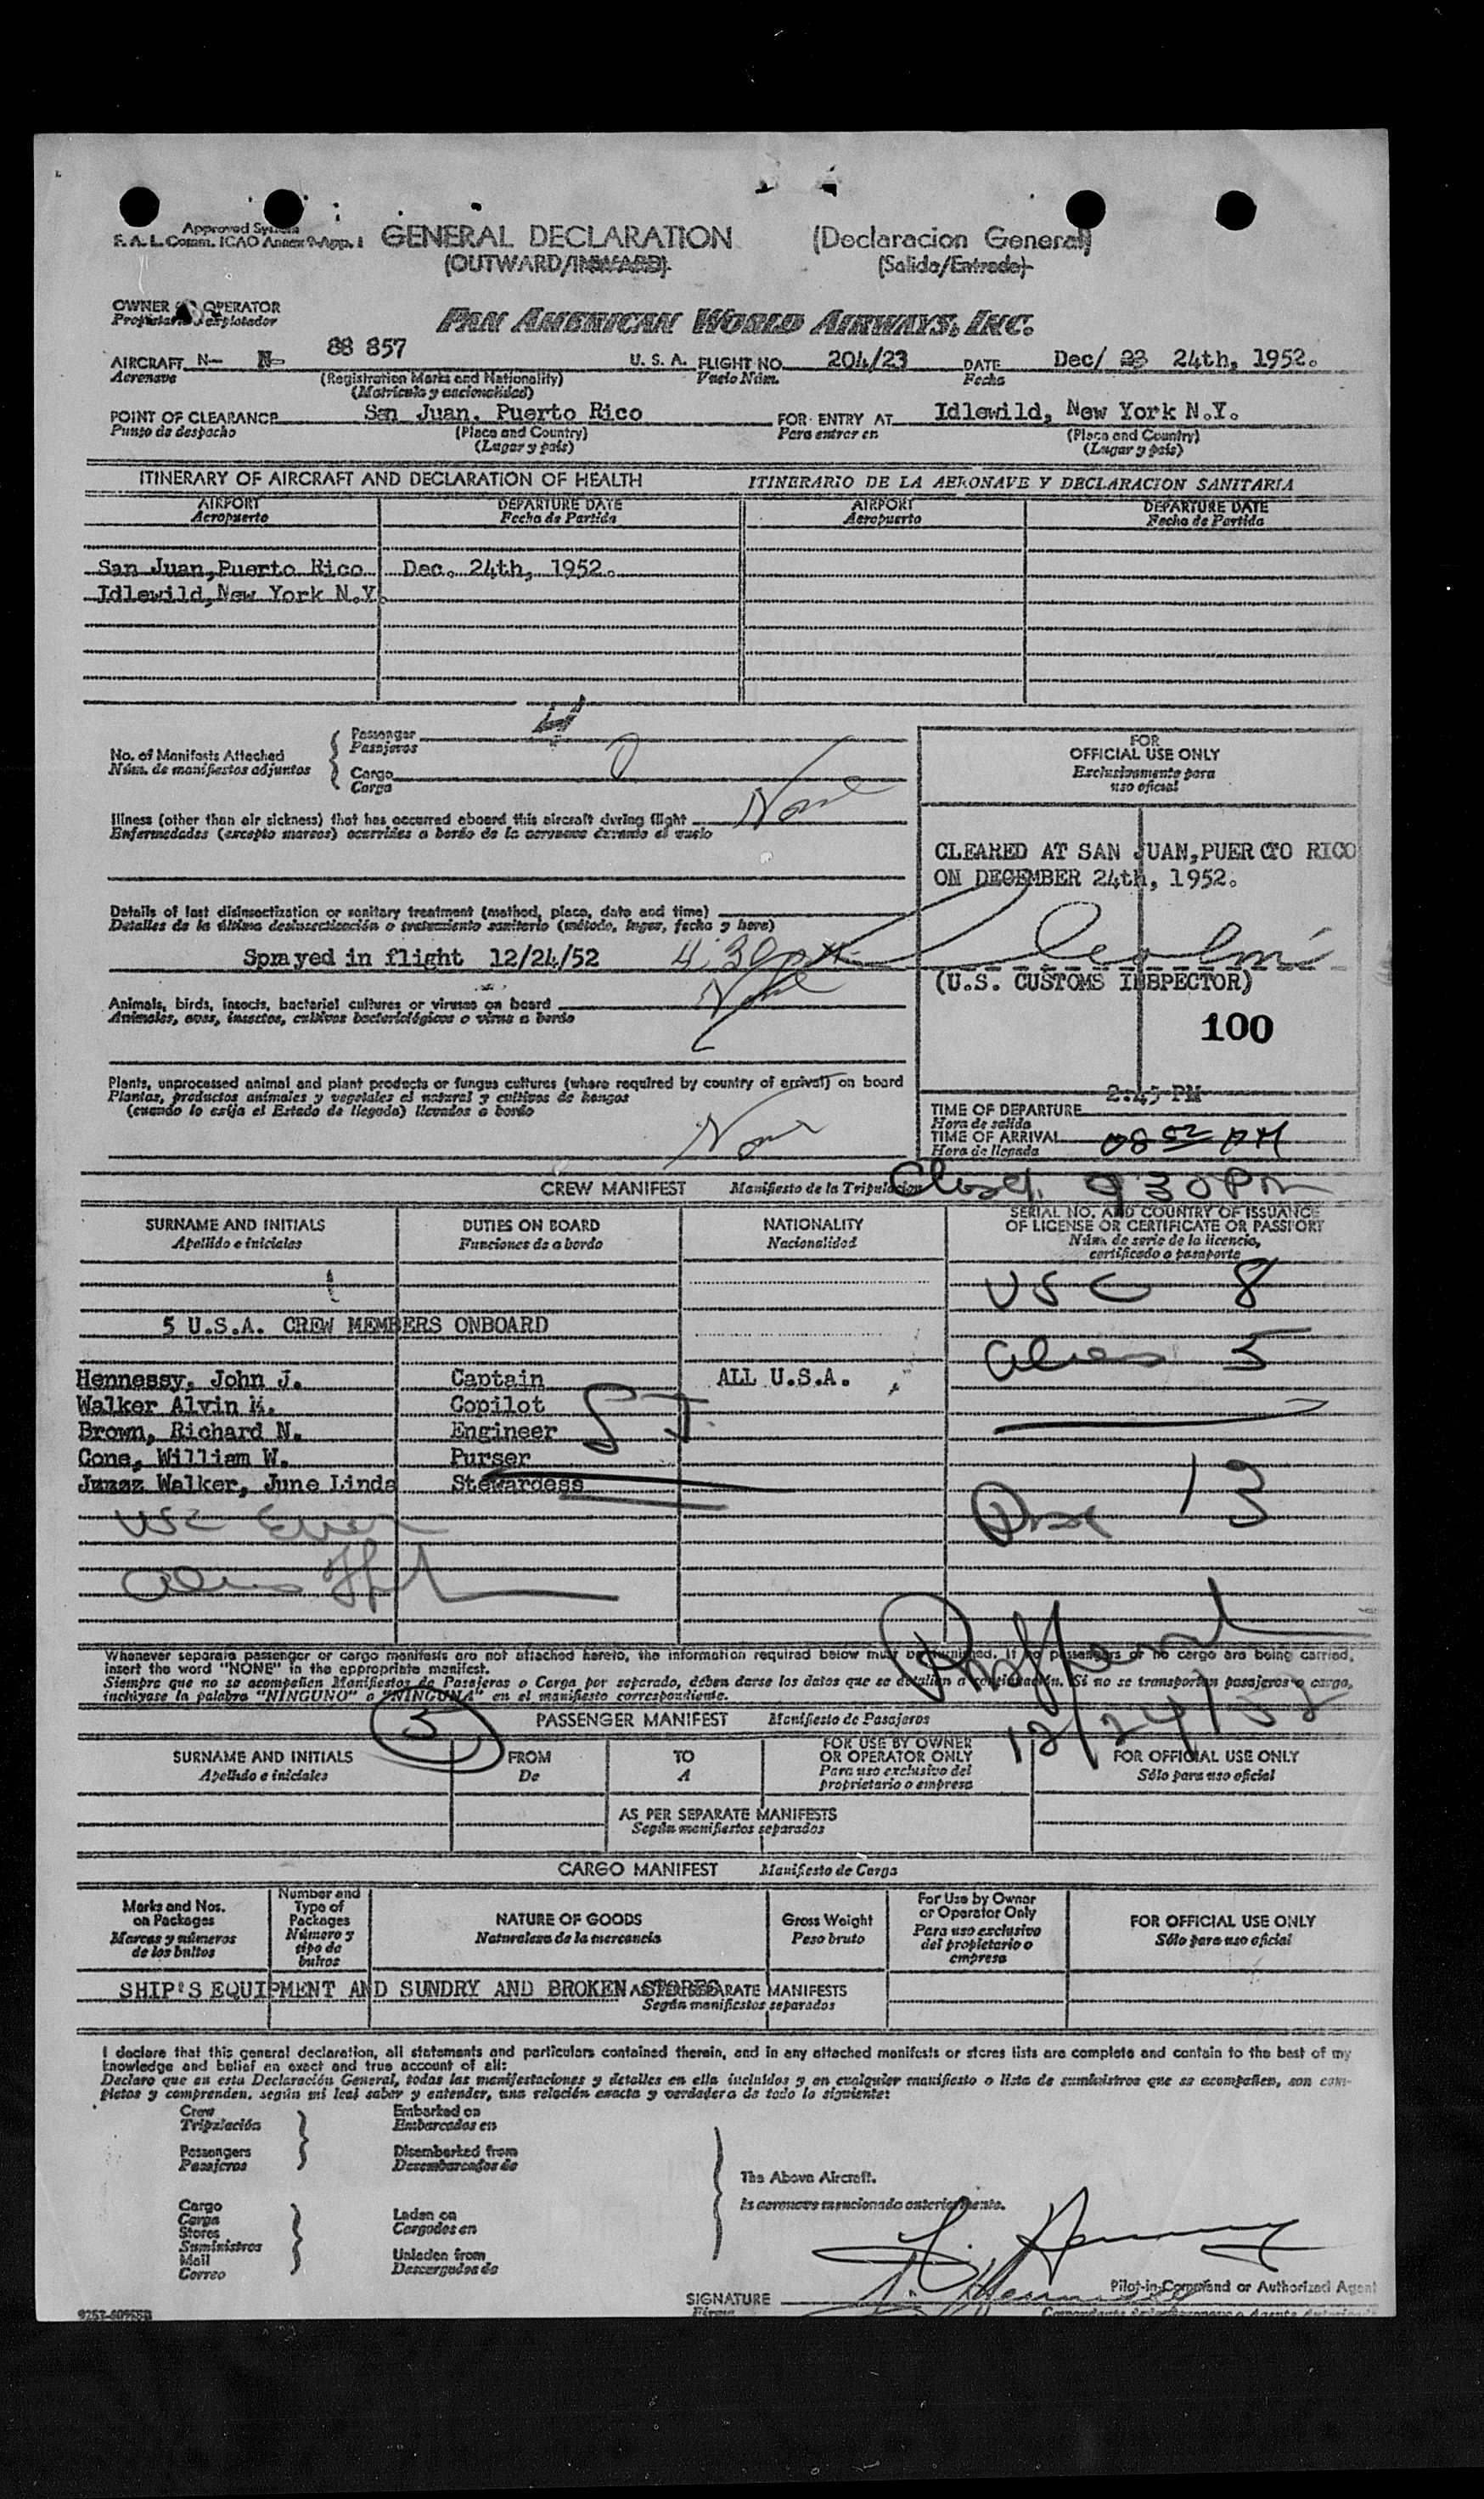 Approved System
F. A. L. Comm. ICAO Annex 9-App. 1
GENERAL DECLARATION (Declaracion General)
(OUTWARD/INWARD) (Salida/Entrada)
OWNER OR OPERATOR
Propietario o explotador
PAN AMERICAN WORLD AIRWAYS, INC.
AIRCRAFT N- N- 88 857 U. S. A. FLIGHT NO. 204/23 DATE Dec/ 23 24th, 1952.
Aeronave (Registration Marks and Nationality) Vuelo Núm. Fecha
(Matricula y nacionalidad)
POINT OF CLEARANCE San Juan, Puerto Rico FOR ENTRY AT Idlewild, New York N.Y.
Punto de despacho (Place and Country) Para entrar en (Place and Country)
(Lugar y país) (Lugar y país)
ITINERARY OF AIRCRAFT AND DECLARATION OF HEALTH ITINERARIO DE LA AERONAVE Y DECLARACION SANITARIA
AIRPORT DEPARTURE DATE AIRPORT DEPARTURE DATE
Aeropuerto Fecha de Partida Aeropuerto Fecha de Partida
San Juan,Puerto Rico Dec. 24th, 1952.
Idlewild,New York N.Y.
No. of Manifests Attached
Núm. de manifiestos adjuntos
Passenger 4
Pasajeros
Cargo 0
Carga
Illness (other than air sickness) that has occurred aboard this aircraft during flight None
Enfermedades (excepto mareos) ocurridas a bordo de la aeronave durante el vuelo
Details of last disinsectization or sanitary treatment (method, place, date and time)
Detalles de la última desinsectización o tratamiento sanitario (método, lugar, fecha y hora)
Sprayed in flight 12/24/52 4:30 pm
Animals, birds, insects, bacterial cultures or viruses on board None
Animales, aves, insectos, cultivos bacteriológicos o virus a bordo
Plants, unprocessed animal and plant products or fungus cultures (where required by country of arrival) on board
Plantas, productos animales y vegetales al natural y cultivos de hongos
(cuando lo exija el Estado de llegada) llevados a bordo
None
FOR
OFFICIAL USE ONLY
Exclusivamente para
uso oficial
CLEARED AT SAN JUAN,PUERTO RICO
ON DECEMBER 24th, 1952.
(U.S. CUSTOMS INSPECTOR)
100
2:45 PM
TIME OF DEPARTURE
Hora de salida
TIME OF ARRIVAL 08 52 PM
Hora de llegada
Closed. 9 30 Pm
CREW MANIFEST Manifiesto de la Tripulacion
SURNAME AND INITIALS DUTIES ON BOARD NATIONALITY SERIAL NO. AND COUNTRY OF ISSUANCE
OF LICENSE OR CERTIFICATE OR PASSPORT
Apellido e iniciales Funciones de a bordo Nacionalidad Núm. de serie de la licencia,
certificado o pasaporte
USC 8
5 U.S.A. CREW MEMBERS ONBOARD
Aliens 5
Hennessy, John J. Captain ALL U.S.A.
Walker Alvin K. Copilot
Brown, Richard N. Engineer
Cone, William W. Purser
Walker, June Linda Stewardess
13
USC
Aliens
Whenever separate passenger or cargo manifests are not attached hereto, the information required below must be furnished. If no passengers or no cargo are being carried,
insert the word "NONE" in the appropriate manifest.
Siempre que no se acompañen Manifiestos de Pasajeros o Carga por separado, deben darse los datos que se detallan a continuación. Si no se transportan pasajeros o carga,
inclúyase la palabra "NINGUNO" o "NINGUNA" en el manifiesto correspondiente.
12/24/52
PASSENGER MANIFEST Manifiesto de Pasajeros
SURNAME AND INITIALS FROM TO FOR USE BY OWNER
OR OPERATOR ONLY FOR OFFICIAL USE ONLY
Apellido e iniciales De A Para uso exclusivo del
propietario o empresa Sólo para uso oficial
AS PER SEPARATE MANIFESTS
Según manifiestos separados
CARGO MANIFEST Manifiesto de Carga
Marks and Nos.
on Packages
Marcas y números
de los bultos
Number and
Type of
Packages
Número y
tipo de
bultos
NATURE OF GOODS
Naturaleza de la mercancia
Gross Weight
Peso bruto
For Use by Owner
or Operator Only
Para uso exclusivo
del propietario o
empresa
FOR OFFICIAL USE ONLY
Sólo para uso oficial
SHIP'S EQUIPMENT AND SUNDRY AND BROKEN STORES
AS PER SEPARATE MANIFESTS
Según manifiestos separados
I declare that this general declaration, all statements and particulars contained therein, and in any attached manifests or stores lists are complete and contain to the best of my
knowledge and belief an exact and true account of all:
Declaro que en esta Declaración General, todas las manifestaciones y detalles en ella incluidos y en cualquier manifiesto o lista de suministros que se acompañen, son com-
pletos y comprenden, según mi leal saber y entender, una relación exacta y verdadera de todo lo siguiente:
Crew Embarked on
Tripulación Embarcados en
Passengers Disembarked from
Pasajeros Desembarcados de
The Above Aircraft.
la aeronave mencionada anteriormente.
Cargo
Carga
Stores
Suministros
Mail
Correo
Laden on
Cargados en
Unladen from
Descargados de
Pilot-in-Command or Authorized Agent
SIGNATURE
Firma